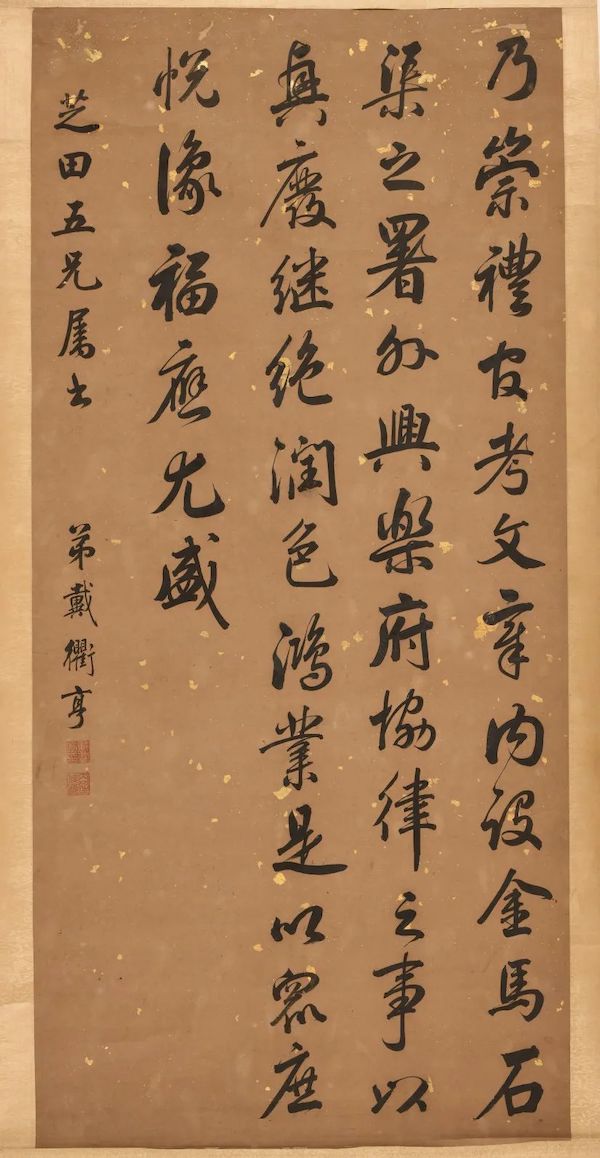 乃崇禮官考文章內設金馬石
渠之署外興樂府協律之事以
興廢继絶潤色鴻業是以眾庶
悅豫福應尤盛
芝田五兄屬书
弟戴衢亨